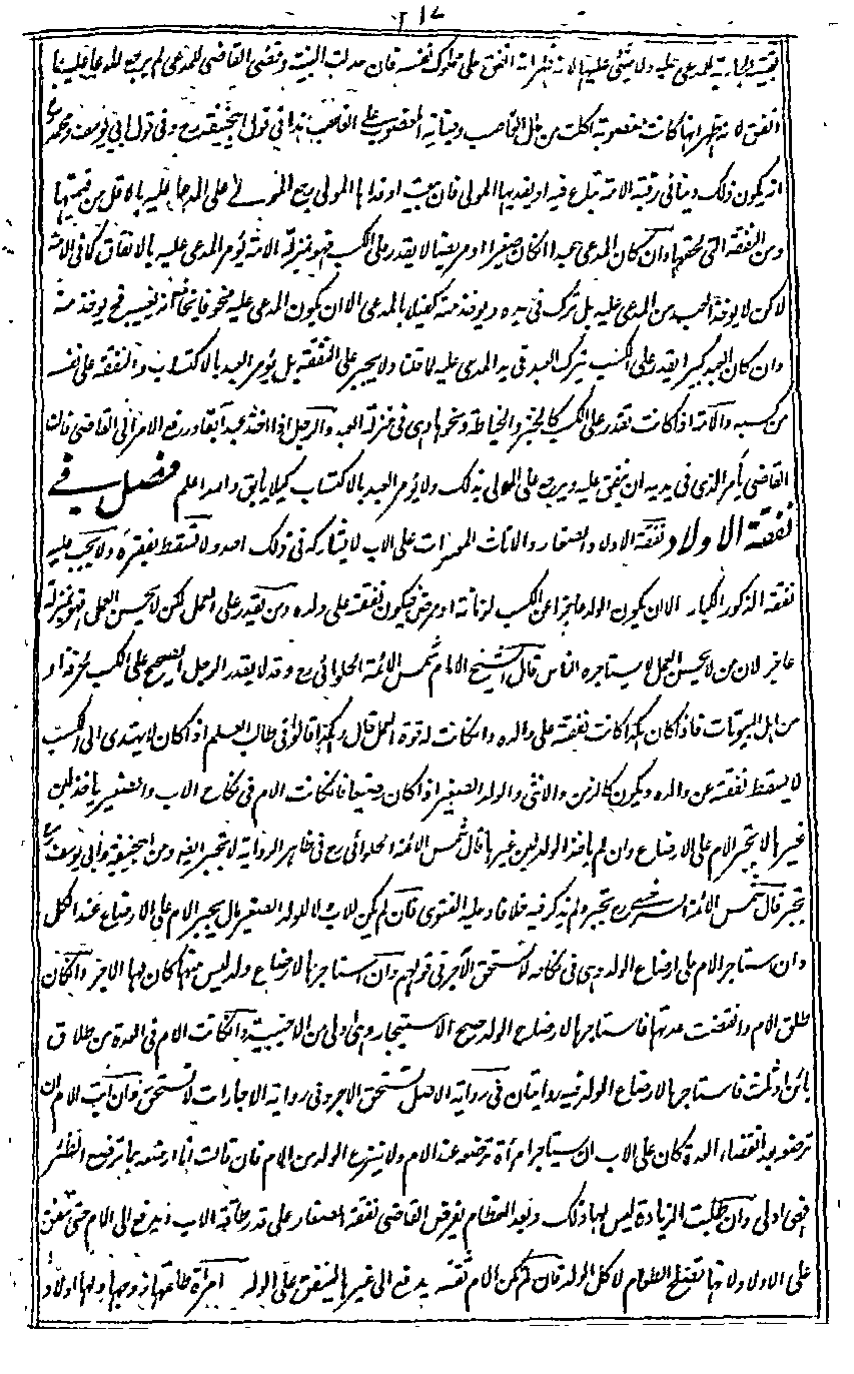 ٢١٧
بقيمة الجارية المدعى عليه ولا شئ عليها لانه ظهر انه انفق على مملوك نفسه فان عدلت البينة وقضى القاضى للمدعى لم يرجع المدعى عليه بما
انفق لانه ظهر انها كانت مغصوبة اكلت من مال الغاصب وجناية المغصوب على الغاصب هذا فى قول ابيحنيفة رح وفى قول ابى يوسف ومحمد رح
انه يكون ذلك دينا فى رقبة الامة تباع فيه او يفديها المولى فان بيعت او فداها المولى رجع المولى على المدعى عليه بالاقل من قيمتها
ومن النفقة التى لحقتها وان كان المدعى عبدا ان كان صغيرا او مريضا لا يقدر على الكسب فهو بمنزلة الامة يؤمر المدعى عليه بالانفاق كما فى الامة
لكن لا يؤخذ العبد من المدعى عليه بل ترك فى يده ويؤخذ منه كفيل بالمدعى الا ان يكون المدعى عليه مخوفا يخاف انه يغيب فح يؤخذ منه
وان كان العبد كبيرا يقدر على الكسب يترك العبد فى يد المدعى عليه لما قلنا ولا يجبر على النفقة بل يؤمر العبد بالاكتساب والنفقة على نفسه
من كسبه والامة اذا كانت تقدر على الكسب كالخبز والخياطة ونحوها وهى فى منزلة العبد والرجل اذا اخذ عبدا آبقا ورفع الامر الى القاضى فان
القاضى يأمر الذى فى يديه ان ينفق عليه ويرجع على المولى بذلك ولا يؤمر العبد بالاكتساب كيلا يابق والله اعلم فصل فى
نفقة الاولاد نفقة الاولاد الصغار والاناث المعسرات على الاب لا يشاركه فى ذلك احد ولا تسقط بفقره ولا يجب عليه
نفقة الذكور الكبار الا ان يكون الولد عاجزا عن الكسب لزمانة او مرض فيكون نفقته على والده ومن يقدر على العمل لكن لا يحسن العمل فهو بمنزلة
عاجز لان من لا يحسن العمل لا يستاجره الناس قال الشيخ الامام شمس الائمة الحلوائى رح وقد لا يقدر الرجل الصحيح على الكسب لحرفة او
من اهل البيوتات فاذا كان هكذا كانت نفقته على والده وان كانت له قوة العمل قال وهكذا قالوا فى طالب العلم اذا كان لا يهتدى الى الكسب
لا يسقط نفقته عن والده ويكون كالزمن والانثى والولد الصغير اذا كان رضيعا فان كانت الام فى نكاح الاب والصغير ياخذ لبن
غيرها لا تجبر الام على الارضاع وان لم ياخذ الولد لبن غيرها قال شمس الائمة الحلوائى رح فى ظاهر الرواية لا تجبر ايضا وعن ابيحنيفة وابى يوسف رح
تجبر قال شمس الائمة السرخسى رح تجبر ولم يذكر فيه خلافا وعليه الفتوى فان لم يكن للاب ولا للولد الصغير مال يجبر الام على الارضاع عند الكل
وان استاجر الام على ارضاع الولد وهى فى نكاحه لا تستحق الاجر فى قولهم وان استاجرها لارضاع ولد ليس منها كان لها الاجر وان كان
طلق الام وانقضت عدتها فاستاجرها لارضاع الولد صح الاستيجار وهى اولى من الاجنبية وان كانت الام فى العدة من طلاق
بائن او ثلث فاستاجرها لارضاع الولد فيه روايتان فى رواية الاصل تستحق الاجر وفى رواية الاجارات لا تستحق وان ابت الام ان
ترضعه بعد انقضاء العدة كان على الاب ان يستاجر امرأة ترضعه عند الام ولا ينزع الولد من الام فان قالت انا ارضعه بما ترضع الظئر
فهى اولى وان طلبت الزيادة ليس لها ذلك وبعد الفطام يفرض القاضى نفقة الصغار على قدر طاقة الاب ويدفع الى الام حتى تنفق
على الاولاد لانها تصلح الطعام لاكل الولد فان لم تكن الام ثقة يدفع الى غيرها لينفق على الولد امرأة طلقها زوجها ولها اولاد